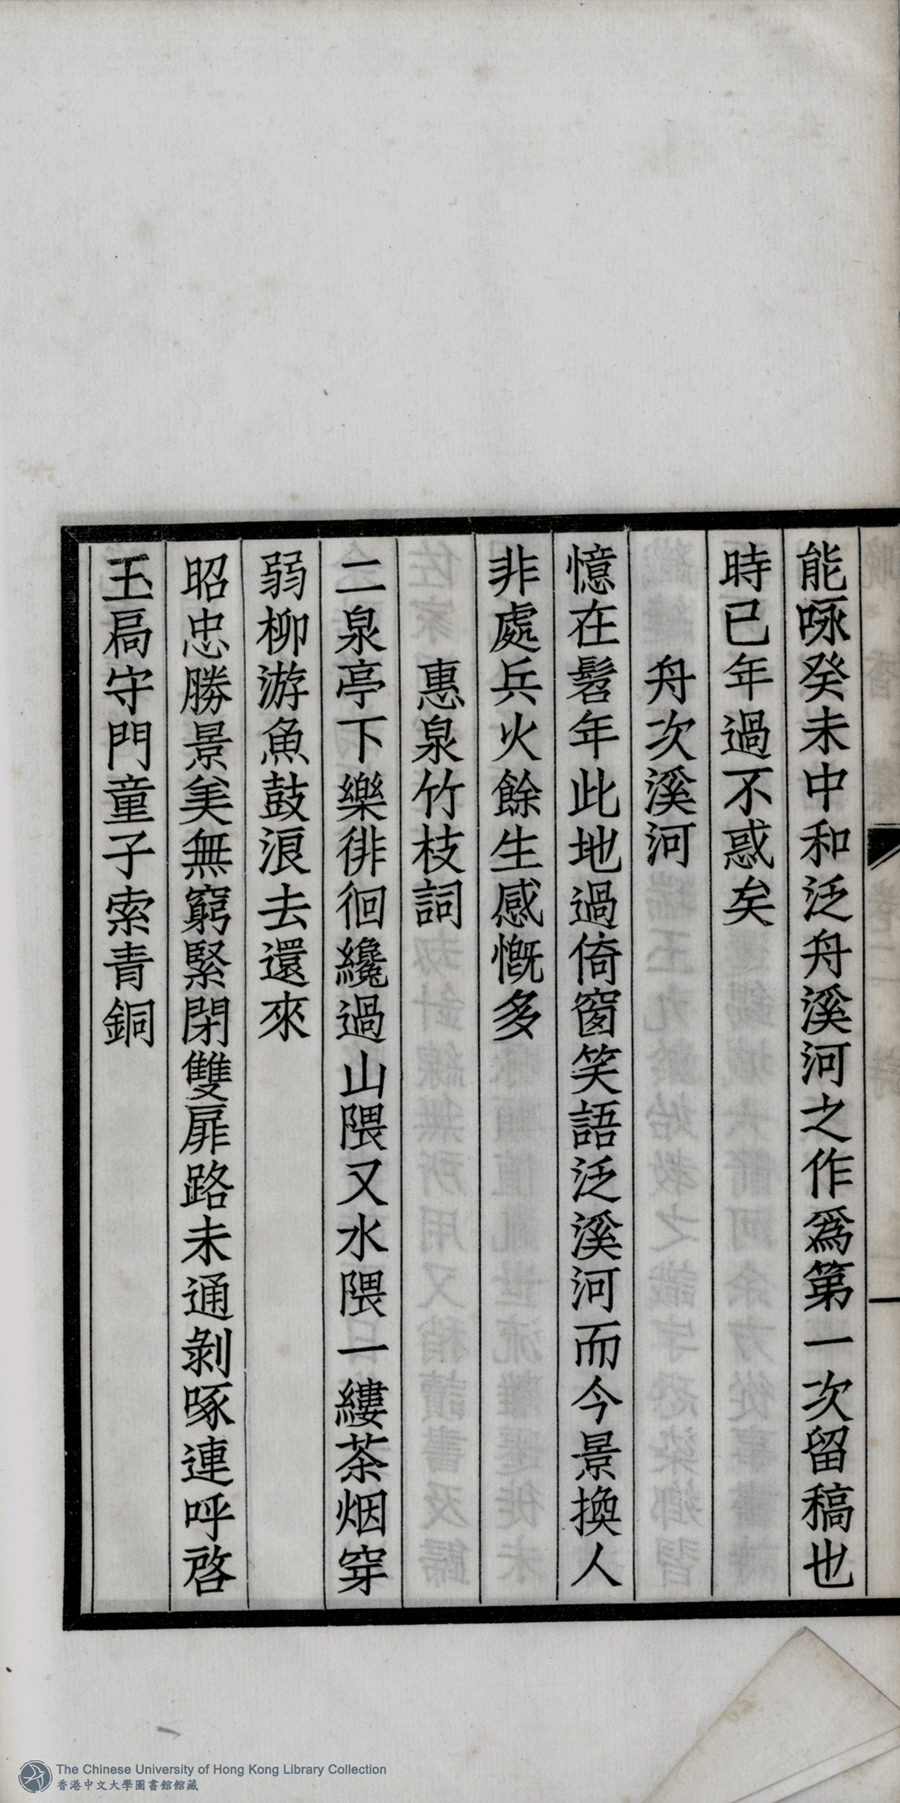 能咏癸未中和泛舟溪河之作爲第一次留稿也
時已年過不惑矣
舟次溪河
憶在髫年此地過倚窗笑語泛溪河而今景換人
非處兵火餘生感慨多
惠泉竹枝詞
二泉亭下樂徘徊纔過山隈又水隈一縷茶烟穿
弱柳游魚鼓浪去還來
昭忠勝景美無窮緊閉雙扉路未通剝啄連呼啓
玉扃守門童子索青銅
The Chinese University of Hong Kong Library Collection
香港中文大學圖書館館藏